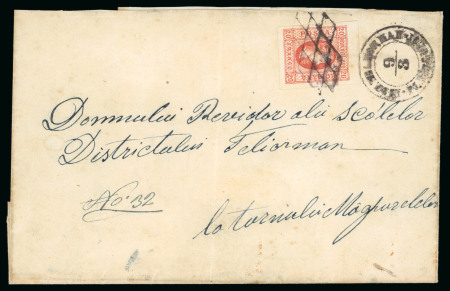 FRANCO
9
8
Domnului Revizor alu Scólelor
Districtului Teliorman
No 32
la tornulu Magurelelor